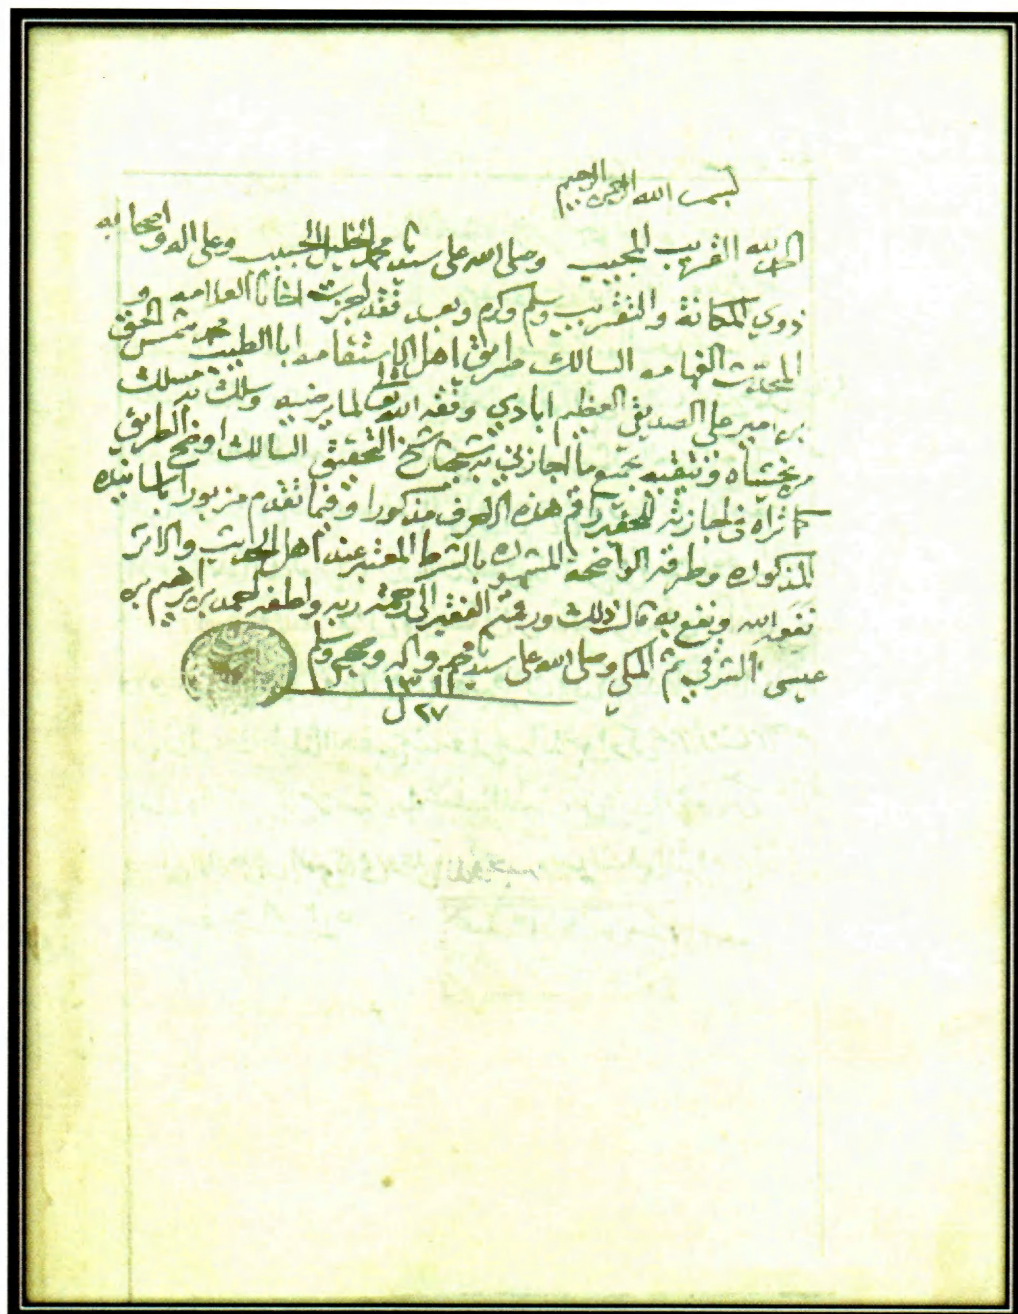 بسم الله الرحمن الرحيم
الحمد لله القريب المجيب وصلى الله على سيدنا محمد الخليل الحبيب وعلى اله واصحابه
ذوي المكانة والتقريب وسلم وكرم وبعد فقد اجزت اخانا العلامه و
المحدث الفهامه السالك طريق اهل الاستقامه ابا الطيب محمد شمس الحق
بن امير علي الصديقي العظيم ابادي وفقه الله تعالى لما يرضيه وسلك به مسلك
من يخشاه ويتقيه بجميع ما اجازني به شيخنا شيخ التحقيق السالك اوضح الطريق
كما تراه في اجازته للحقير راقم هذه الحروف مذكورا وفيما تقدم مزبورا باسانيده
المذكوره وطرقه الواضحة المشهوره بالشرط المعتبر عند اهل الحديث والاثر
نفعه الله ونفع به قال ذلك ورقمه الفقير الى رحمة ربه ولطفه احمد بن ابراهيم بن
عيسى الشرقي ثم المكي وصلى الله على سيدنا محمد واله وصحبه وسلم
١٣١١
٢٧ ل